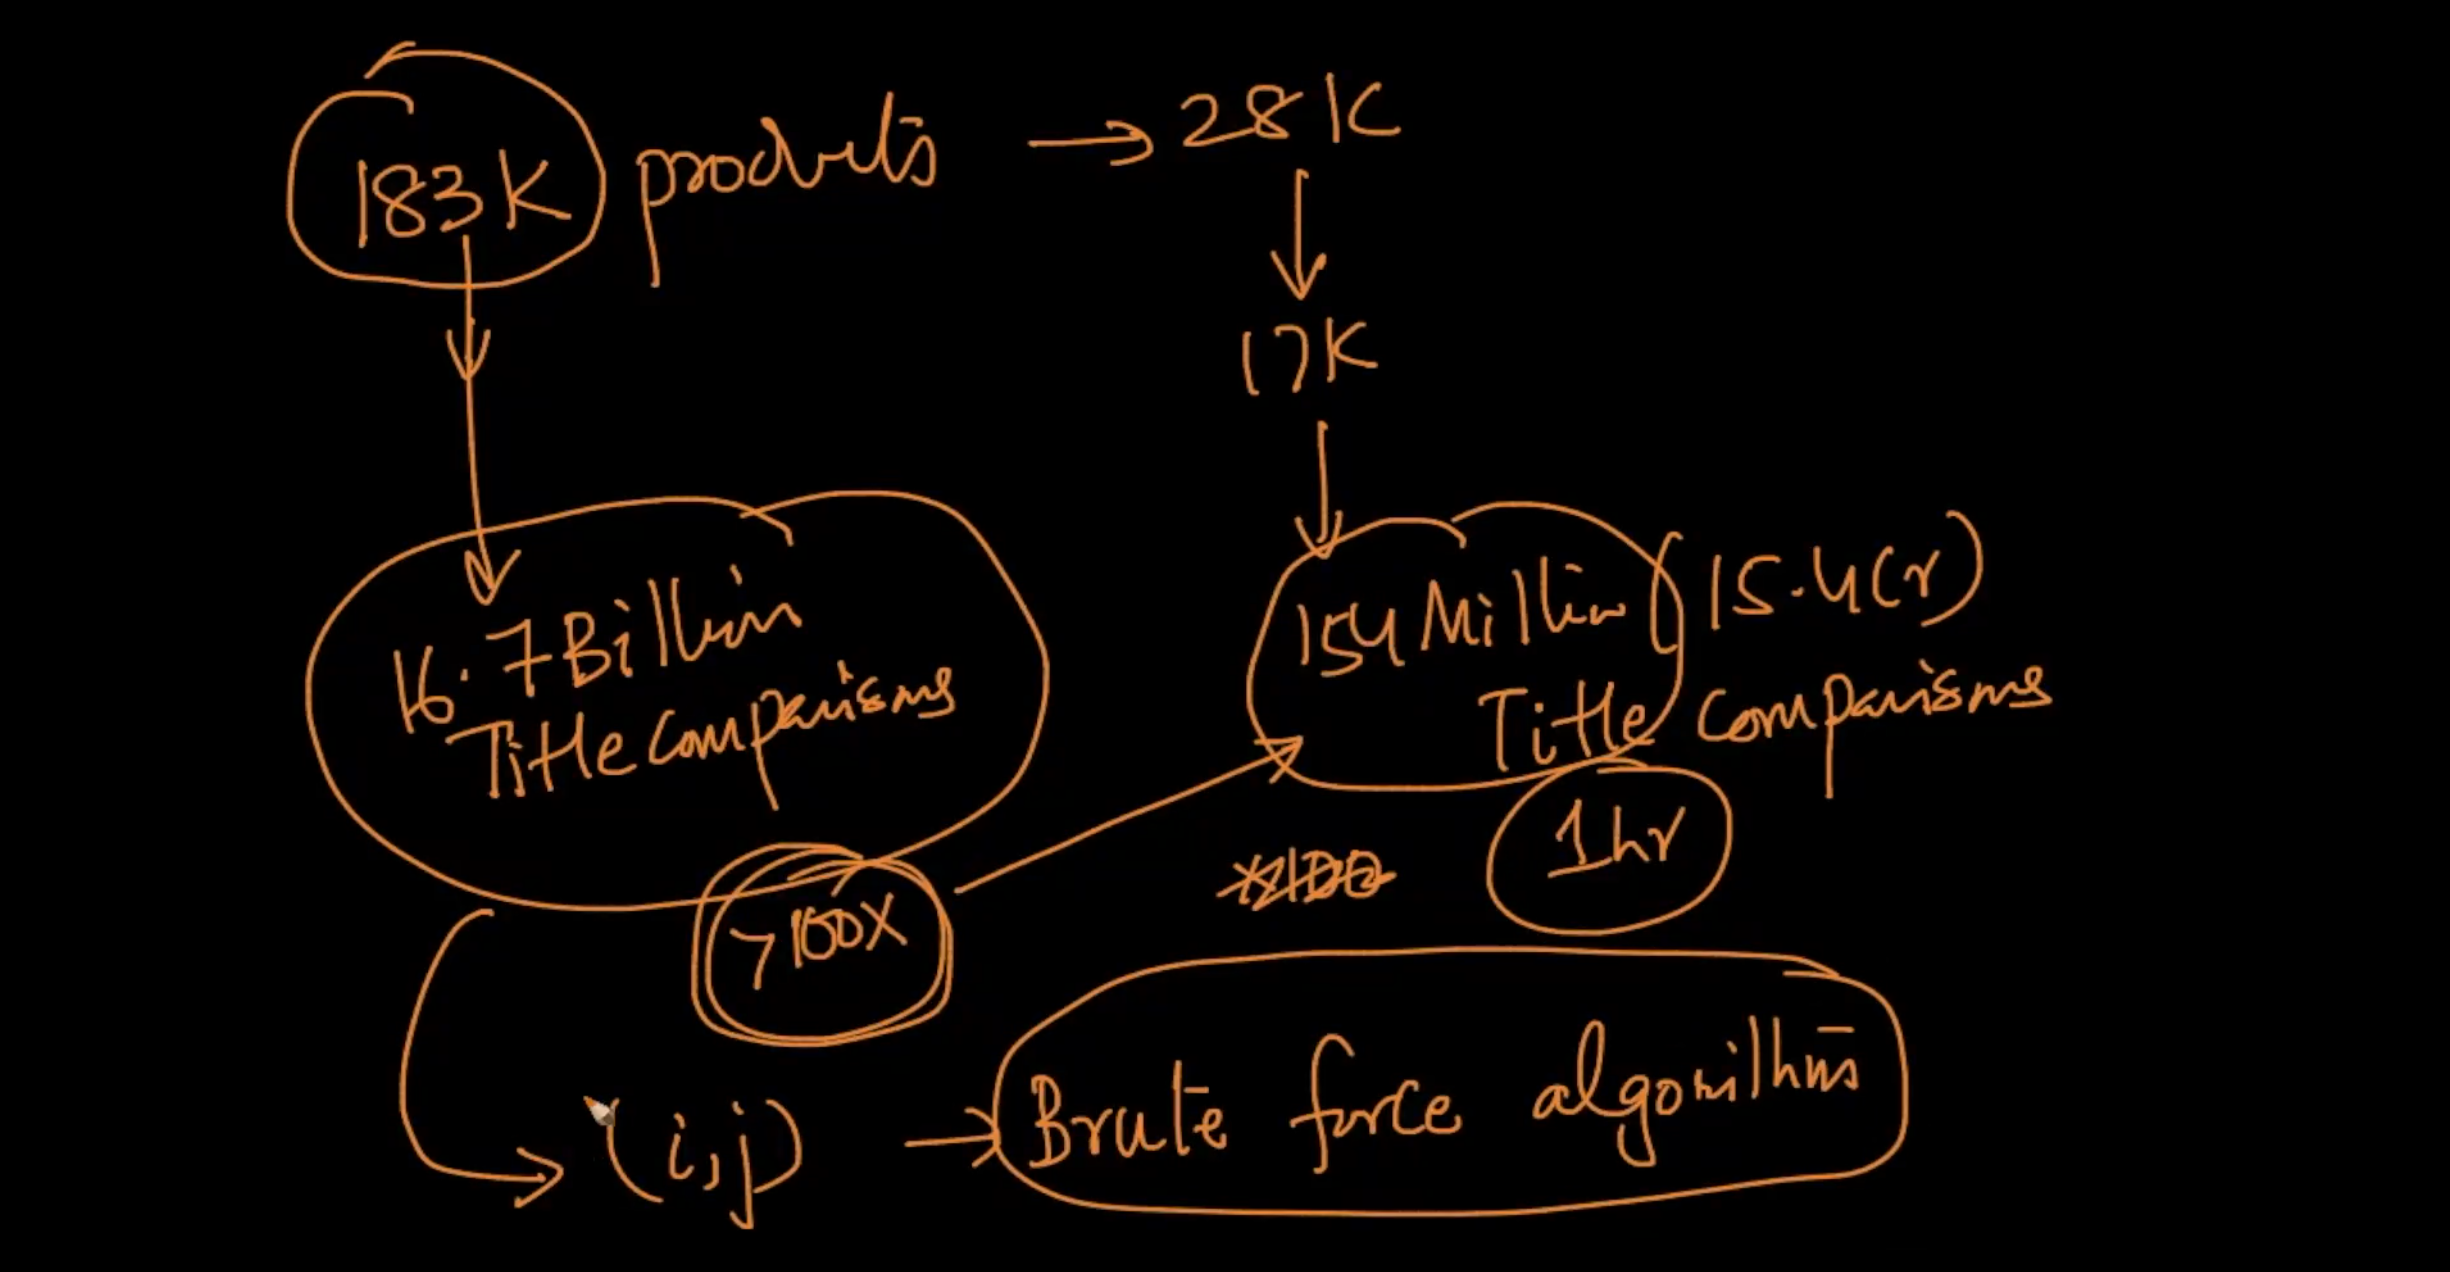 183K products → 28K
17K
16.7 Billion
Title comparisons
154 Million (15.4Cr)
Title comparisons
1hr
>100X
(i,j) → Brute force algorithm